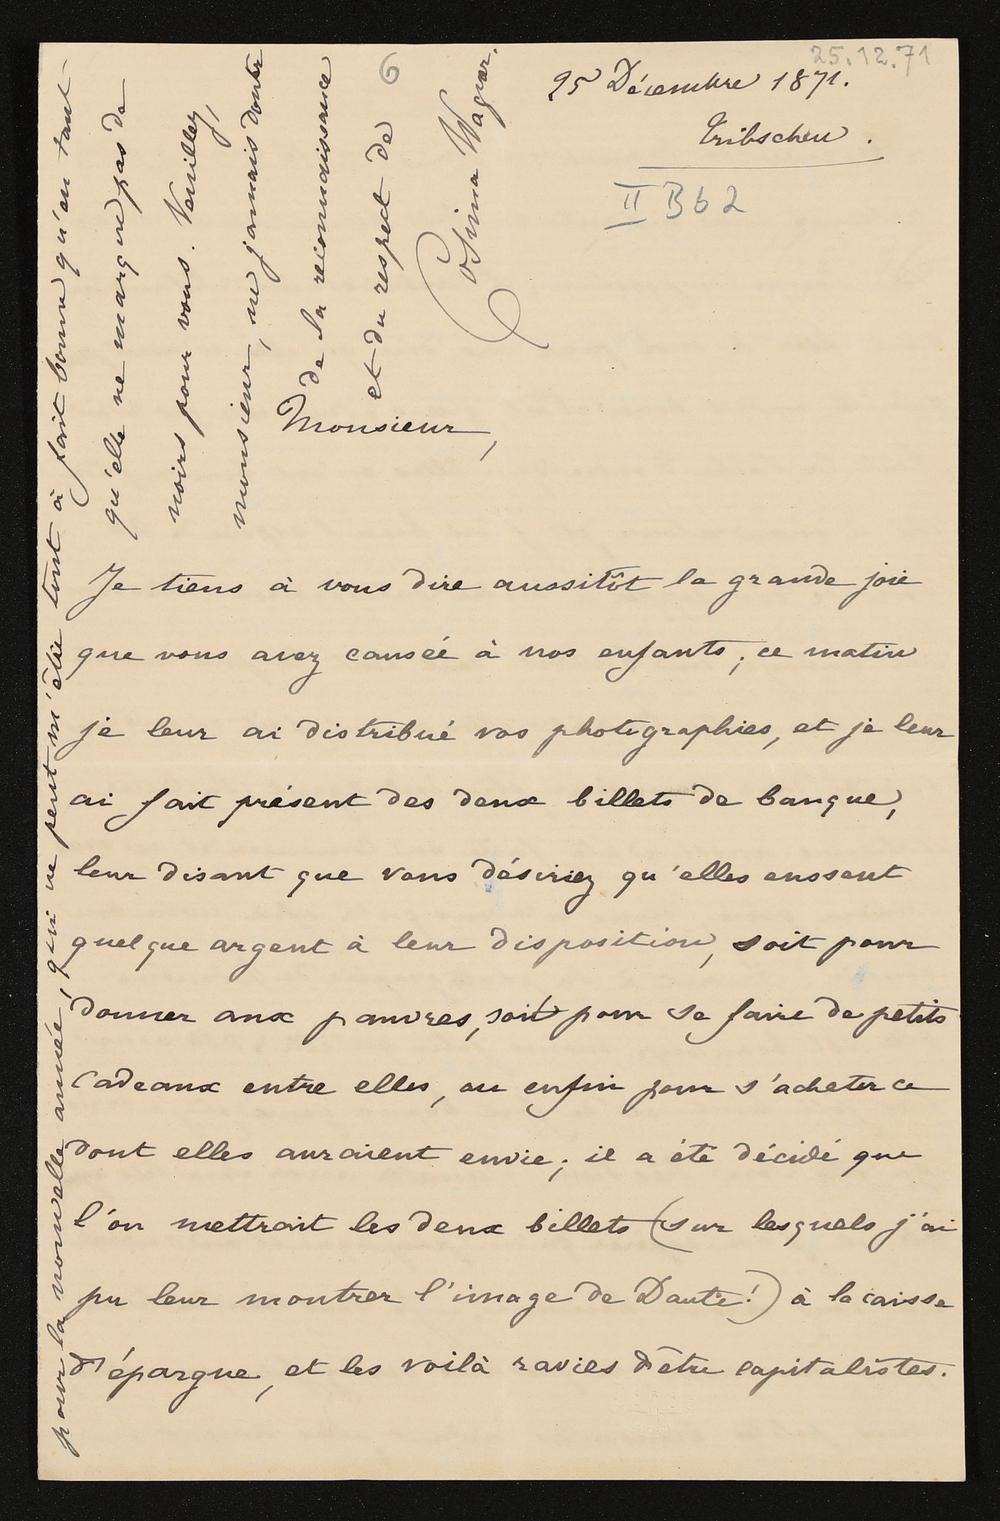 25.12.71
25 Décembre 1871.
Tribschen.
II B b 2
6
Monsieur,
Je tiens à vous dire aussitôt la grande joie
que vous avez causée à nos enfants; ce matin
je leur ai distribué vos photographies, et je leur
ai fait présent des deux billets de banque,
leur disant que vous désiriez qu'elles eussent
quelque argent à leur disposition, soit pour
donner aux pauvres, soit pour se faire de petits
cadeaux entre elles, ou enfin pour s'acheter ce
dont elles auraient envie; il a été décidé que
l'on mettrait les deux billets (sur lesquels j'ai
pu leur montrer l'image de Dante!) à la caisse
d'épargne, et les voilà ravies d'être capitalistes.
pour la nouvelle année, qui ne peut m'être tout à fait bonne qu'en tant
qu'elle ne marque pas de
noirs pour vous. Veuillez,
monsieur, ne jamais douter
de la reconnaissance
et du respect de
Cosima Wagner.